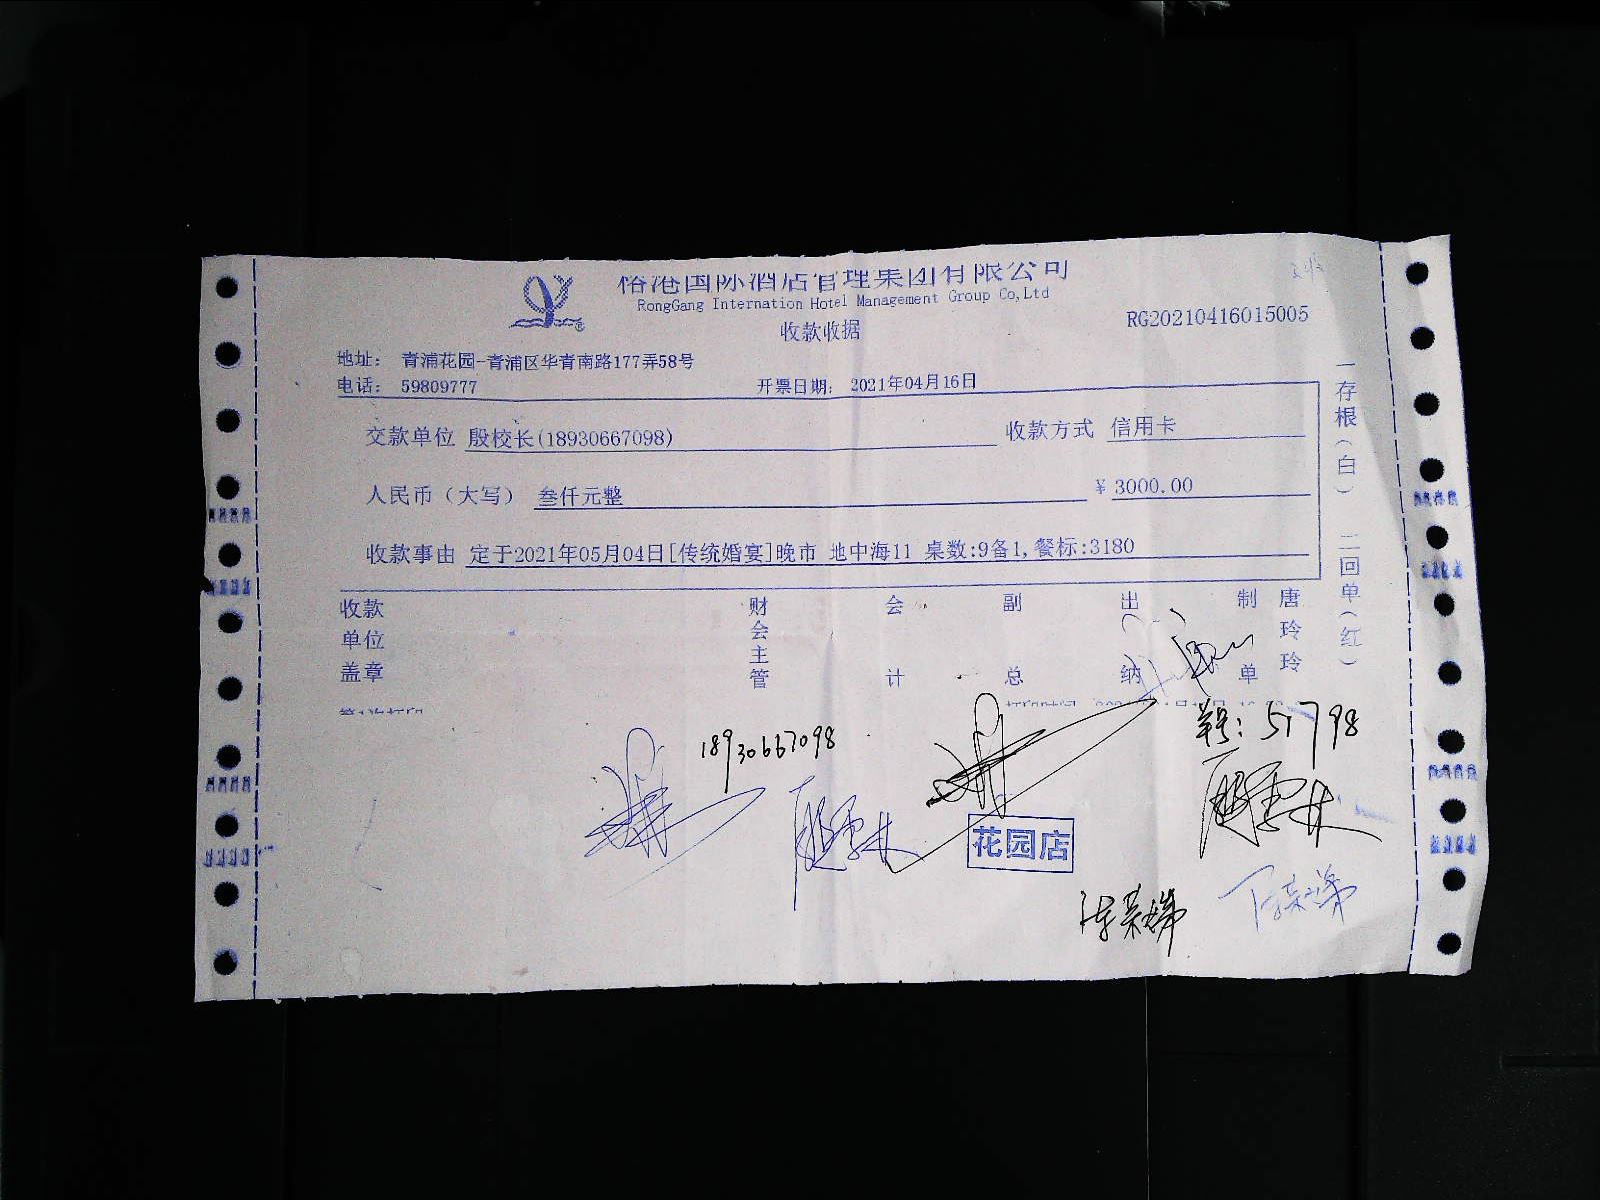 国际酒店管理集团有限公司
RongGang Internation Hotel Management Group Co,Ltd
收款收据
RG20210416015005
地址： 青浦花园-青浦区华青南路177弄58号
电话： 59809777 开票日期： 2021年04月16日
交款单位 殷校长(18930667098) 收款方式 信用卡
人民币（大写） 叁仟元整 ¥ 3000.00
收款事由 定于2021年05月04日[传统婚宴]晚市 地中海11 桌数:9备1,餐标:3180
收款单位盖章 财会主管 会计 副总 出纳 制单 唐玲玲
一存根(白) 二回单(红)
18930667098
单号：51798
花园店